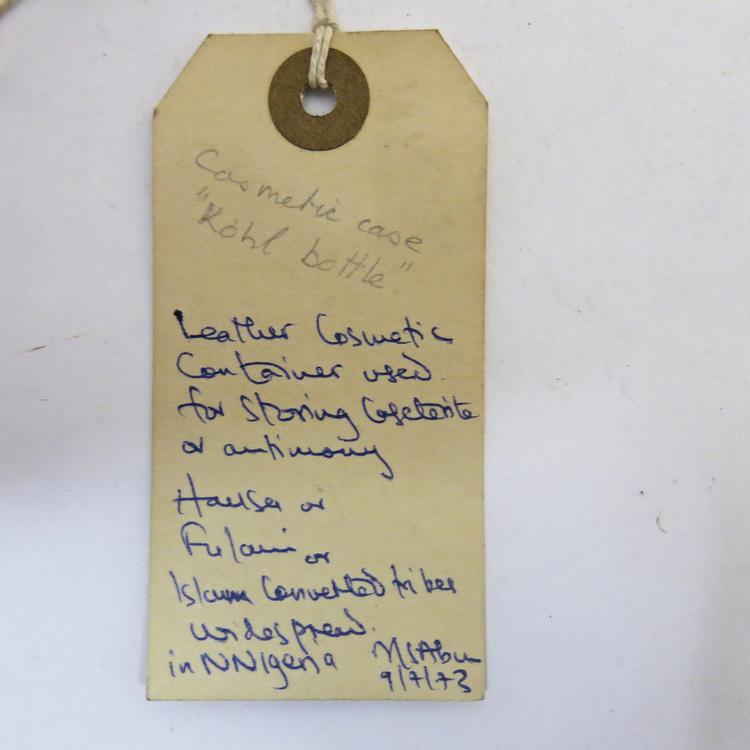 Cosmetic case
"Kohl bottle"
Leather Cosmetic
Container used
for storing Caseterite
or antimony
Hausa or
Fulani or
Islam Converted tribes
widespread.
in N Nigeria
9/7/73